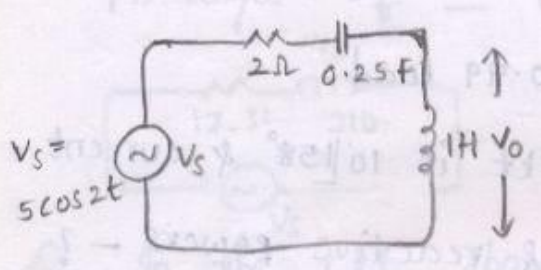 2Ω 0.25F
Vs = 5cos2t
Vs
1H V₀